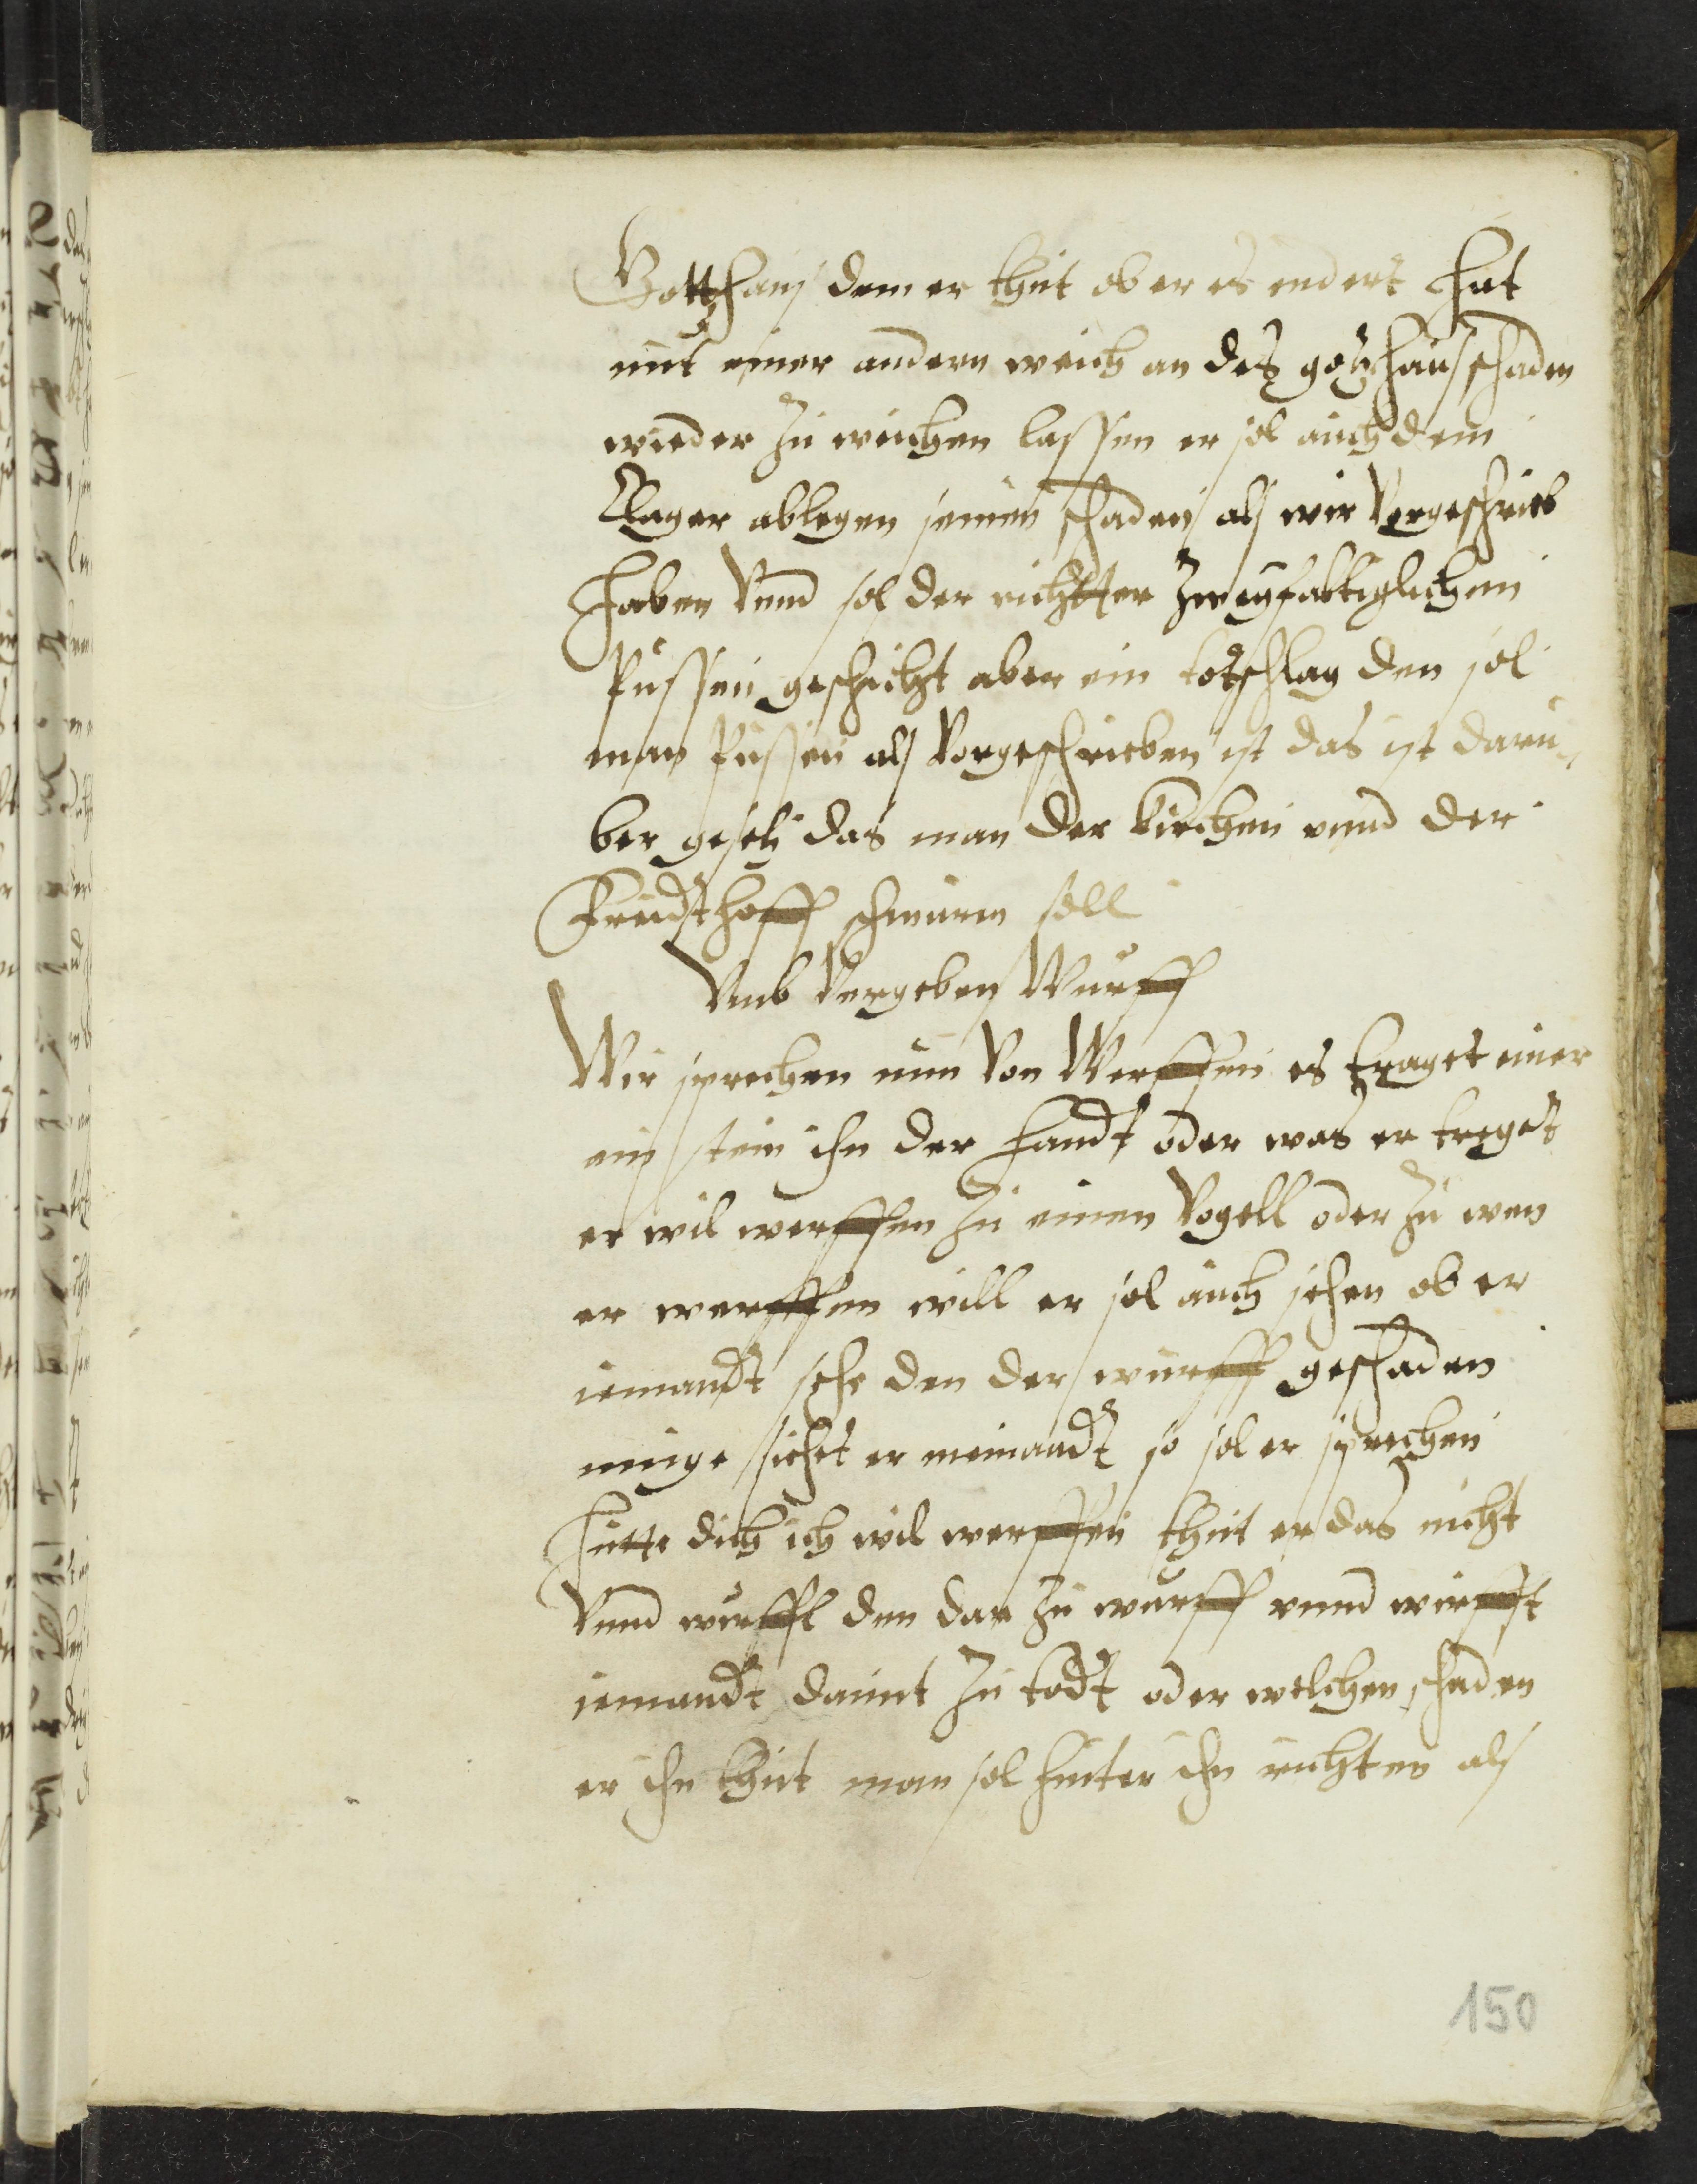 Gottshaus dem er thut ob er es endert hat
mit einer andern weich an des gotzhaus schaden
wieder zu weichen lassen er sol auch dem
Clager ablegen seinen schaden als wir Vorgeschrieb
haben Vnnd sol der richtter Zweyfaltiglichen
Pussen geschicht aber ein totschlag den sol
man Pussen als Vorgeschrieben ist das ist daru¬
ber gesetz das man der kirchen vnnd der
Freidthoff schonnen soll
Vmb Vergeben Wurff
Wir sprechen nun Von Werffen es traget einer
ein stein ihn der handt oder was er treget
er wil werffen zu einen Vogell oder zu wen
er werffen will er sol auch sehen ob er
iemandt sehe den der wurff geschaden
muge sichet er niemandt so sol er sprechen
hutte dich ich wil werffen thut er das nicht
Vnnd wirfft den dar zu wurff vnnd wirfft
iemandt damit zu todt oder welchen schaden
er ihn thut man sol hinter ihn richten als
150